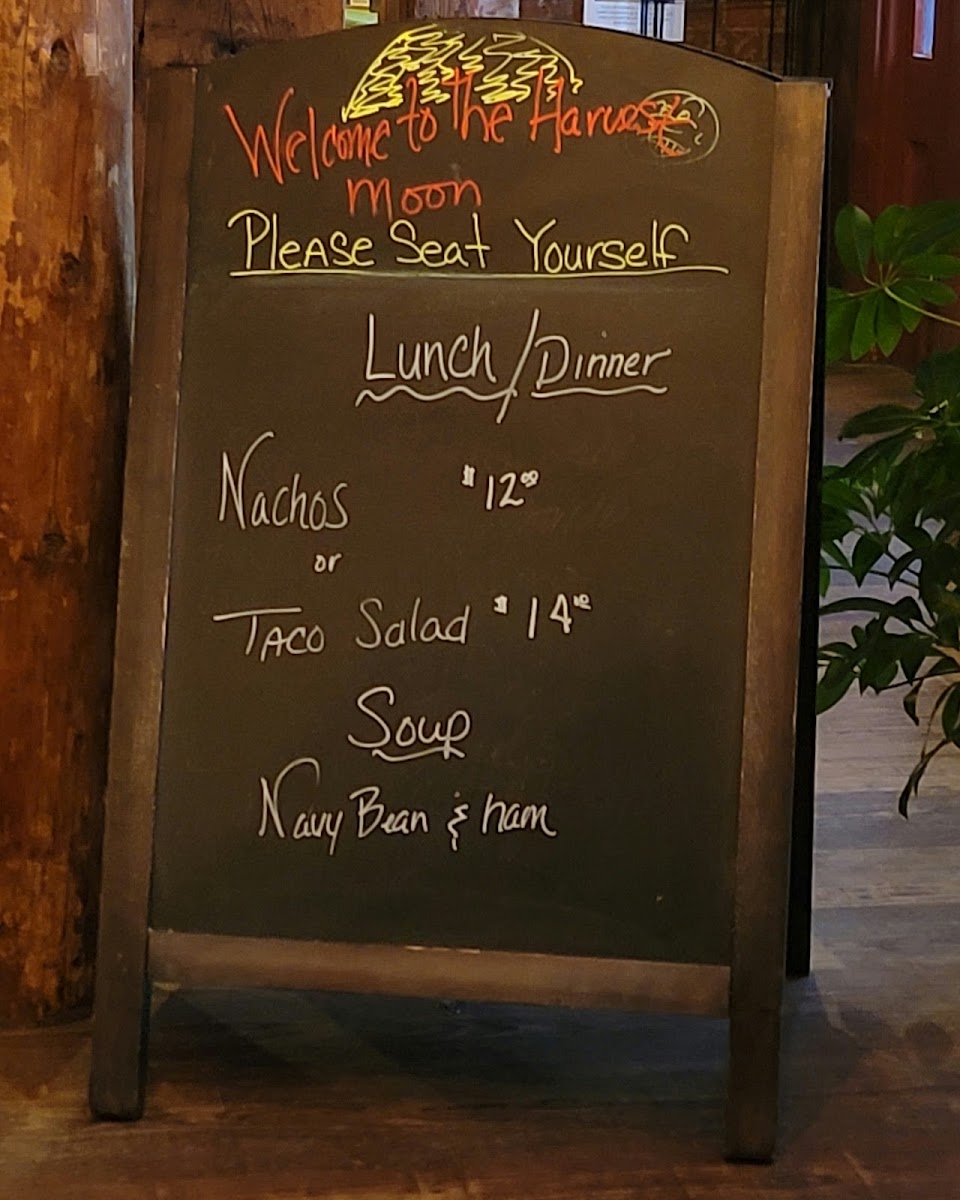 Welcome to the Harvest
Moon
Please Seat Yourself
Lunch/Dinner
Nachos $12.00
or
Taco Salad $14
Soup
Navy Bean & ham